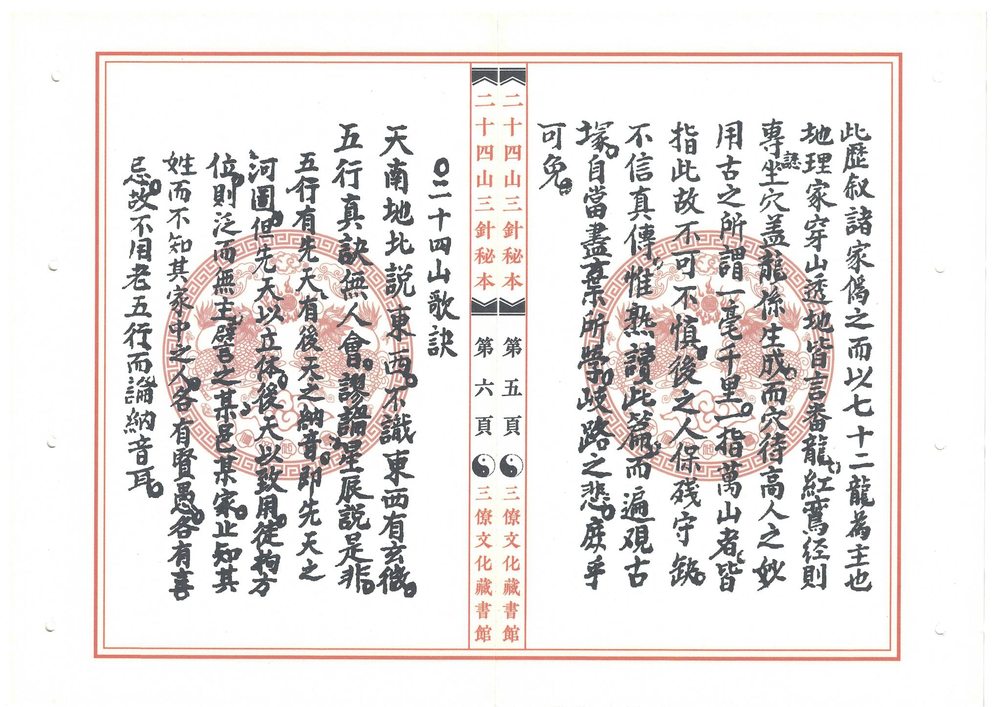 此歷叙諸家偽之而以七十二龍為主也
地理家穿山透地皆言番龍紅鸞經則
專論坐穴盖龍係生成而穴待高人之妙
用古之所謂一毫千里一指萬山者皆
指此故不可不慎後之人保残守缺
不信真傳惟熟讀此篇而遍观古
塚自當盡棄所學岐路之悲庶乎
可免
二十四山三針秘本
第五頁
三僚文化藏書館
二十四山三針秘本
第六頁
三僚文化藏書館
○二十四山歌訣
天南地北説東西不識東西有玄微
五行真訣無人會謬論星辰説是非
五行有先天有後天之納音即先天之
河圖但先天以立体後天以致用徒拘方
位則泛而無主辟言之某邑某家止知其
姓而不知其家中之人各有賢愚各有喜
忌故不用老五行而論納音耳